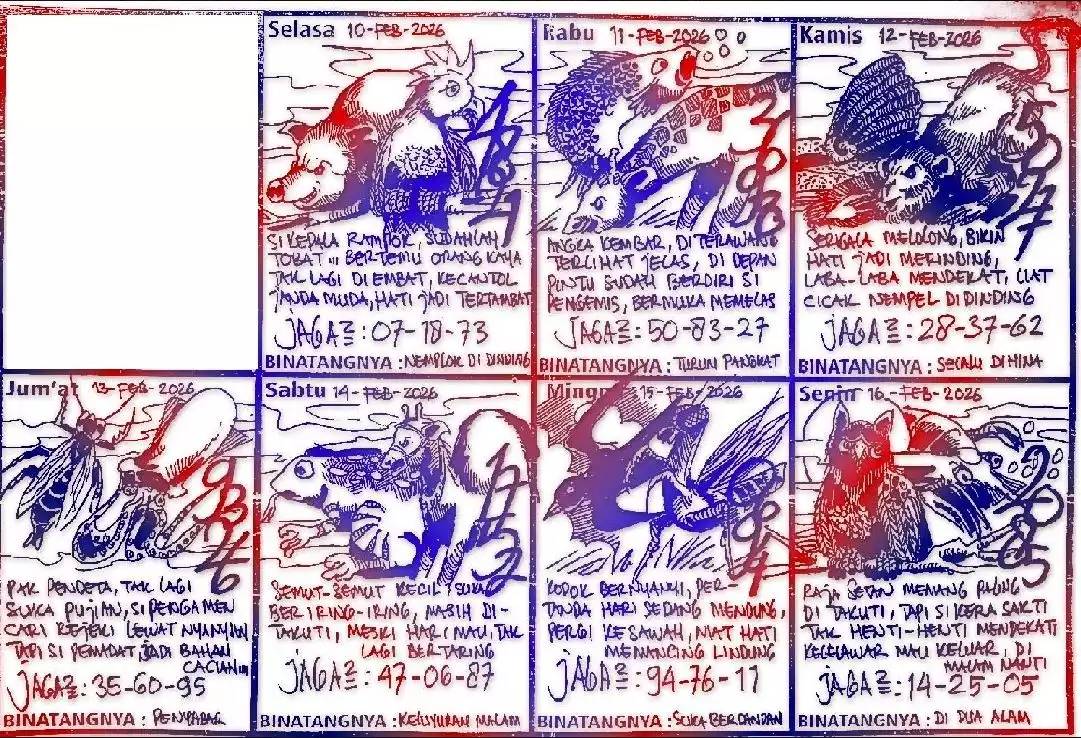 Selasa 10-FEB-2026
SI KEPALA RAMPOK, SUDAHLAH
TOBAT... BERTEMU ORANG KAYA
TAK LAGI DI EMBAT, KECANTOL
JANDA MUDA, HATI JADI TERTAMBAT
JAGA2 : 07-18-73
BINATANGNYA : NEMPLOK DI DINDING
Rabu 11-FEB-2026
ANGKA KEMBAR, DI TERAWANG
TERLIHAT JELAS, DI DEPAN
PINTU SUDAH BERDIRI SI
PENGEMIS, BERMUKA MEMELAS
JAGA2 : 50-83-27
BINATANGNYA : TURUN PANGKAT
Kamis 12-FEB-2026
SERIGALA MELOLONG, BIKIN
HATI JADI MERINDING,
LABA-LABA MENDEKAT, LIAT
CICAK NEMPEL DIDINDING
JAGA2 : 28-37-62
BINATANGNYA : SELALU DI HINA
Jum'at 13-FEB-2026
PAK PENDETA, TAK LAGI
SUKA PUJIAN, SI PENGAMEN
CARI REJEKI LEWAT NYANYIAN
TAPI SI PEMADAT, JADI BAHAN
CACIAN
JAGA2 : 35-60-95
BINATANGNYA :
Sabtu 14-FEB-2026
SEMUT-SEMUT KECIL, SUKA
BERIRING-IRING, MASIH DI-
TAKUTI, MESKI HARIMAU, TAK
LAGI BERTARING
JAGA2 : 47-06-87
BINATANGNYA : KELUYURAN MALAM
Minggu 15-FEB-2026
KODOK BERNYANYI, PER-
TANDA HARI SEDANG MENDUNG,
PERGI KE SAWAH, NIAT HATI
MEMANCING LINDUNG
JAGA2 : 94-76-11
BINATANGNYA : SUKA BERDANDAN
Senin 16-FEB-2026
RAJA SETAN MEMANG PALING
DI TAKUTI, TAPI SI KERA SAKTI
TAK HENTI-HENTI MENDEKATI
KELELAWAR MAU KELUAR, DI
MALAM NANTI
JAGA2 : 14-25-05
BINATANGNYA : DI DUA ALAM